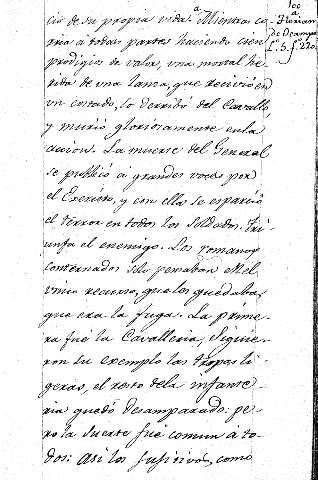 cio de su propia vida. a Mientras co-
rria á todas partes haciendo cien
prodigios de valor, una mortal he-
rida de una lanza, que recivió en
un costado, lo derribó del Cavallo,
y murió gloriosamente en la
accion. La muerte del General
se publicó á grandes voces por
el Exercito, y con ella se esparció
el terror en todos los soldados. Tri-
unfa el enemigo. Los romanos
consternados solo pensaban en el
unico recurso, que los quedaba,
que era la fuga. La prime-
ra fué la Cavalleria, siguie-
ron su exemplo las tropas li-
geras, el resto dela infante-
ria quedó desamparado: pe-
ro la suerte fué comun á to-
dos: Asi los fugitivos, como
a Florian
de Ocampo
L.º 5. f.º 220.